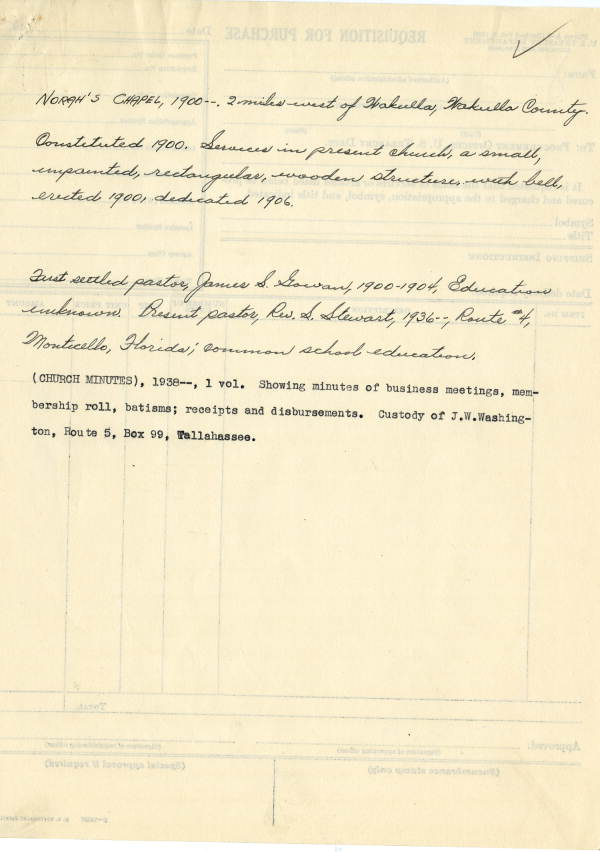 NORAH'S CHAPEL, 1900--. 2 miles west of Wakulla, Wakulla County.
Constituted 1900. Services in present church, a small,
unpainted, rectangular, wooden structure, with bell,
erected 1900, dedicated 1906.
First settled pastor, James S. Gowan, 1900-1904, Education
unknown. Present pastor, Rev. S. Stewart, 1936--, Route #4,
Monticello, Florida; common school education.
(CHURCH MINUTES), 1938--, 1 vol. Showing minutes of business meetings, mem-
bership roll, batisms; receipts and disbursements. Custody of J.W.Washing-
ton, Route 5, Box 99, Tallahassee.
REQUISITION FOR PURCHASE
Symbol
Title
Total
Approved:
(Special approval if required)
(Encumbrance stamp only)